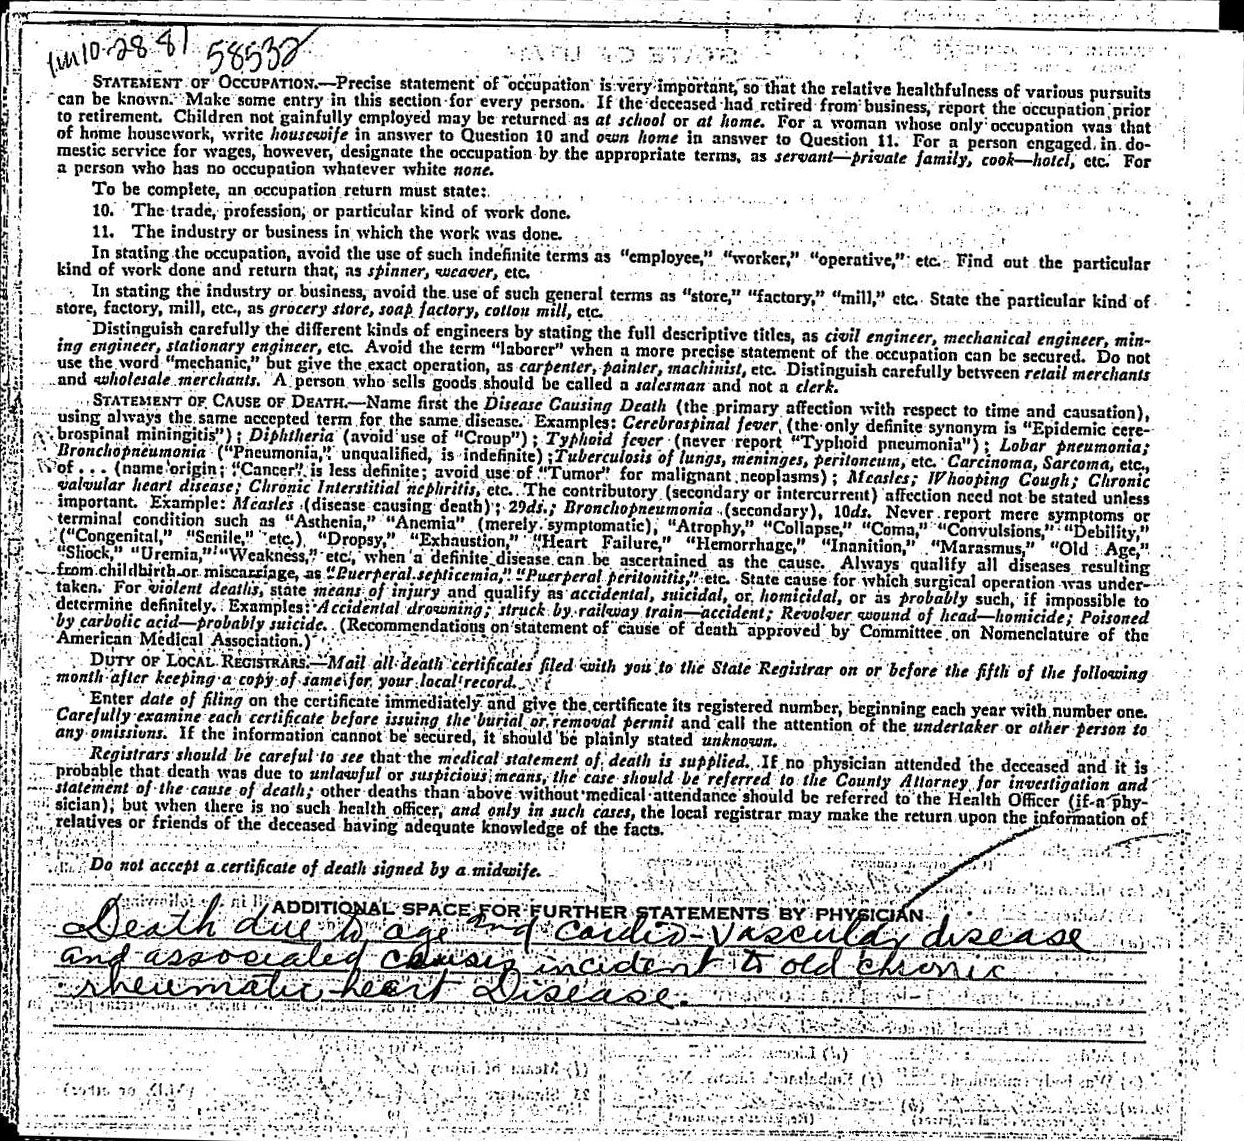 10-28 81 58532
STATEMENT OF OCCUPATION.—Precise statement of occupation is very important, so that the relative healthfulness of various pursuits
can be known. Make some entry in this section for every person. If the deceased had retired from business, report the occupation prior
to retirement. Children not gainfully employed may be returned as at school or at home. For a woman whose only occupation was that
of home housework, write housewife in answer to Question 10 and own home in answer to Question 11. For a person engaged in do-
mestic service for wages, however, designate the occupation by the appropriate terms, as servant—private family, cook—hotel, etc. For
a person who has no occupation whatever white none.
To be complete, an occupation return must state:
10. The trade, profession, or particular kind of work done.
11. The industry or business in which the work was done.
In stating the occupation, avoid the use of such indefinite terms as "employee," "worker," "operative," etc. Find out the particular
kind of work done and return that, as spinner, weaver, etc.
In stating the industry or business, avoid the use of such general terms as "store," "factory," "mill," etc. State the particular kind of
store, factory, mill, etc., as grocery store, soap factory, cotton mill, etc.
Distinguish carefully the different kinds of engineers by stating the full descriptive titles, as civil engineer, mechanical engineer, min-
ing engineer, stationary engineer, etc. Avoid the term "laborer" when a more precise statement of the occupation can be secured. Do not
use the word "mechanic," but give the exact operation, as carpenter, painter, machinist, etc. Distinguish carefully between retail merchants
and wholesale merchants. A person who sells goods should be called a salesman and not a clerk.
STATEMENT OF CAUSE OF DEATH.—Name first the Disease Causing Death (the primary affection with respect to time and causation),
using always the same accepted term for the same disease. Examples: Cerebrospinal fever (the only definite synonym is "Epidemic cere-
brospinal miningitis"); Diphtheria (avoid use of "Croup"); Typhoid fever (never report "Typhoid pneumonia"); Lobar pneumonia;
Bronchopneumonia ("Pneumonia," unqualified, is indefinite); Tuberculosis of lungs, meninges, peritoneum, etc. Carcinoma, Sarcoma, etc.,
of . . . (name origin; "Cancer" is less definite; avoid use of "Tumor" for malignant neoplasms); Measles; Whooping Cough; Chronic
valvular heart disease; Chronic Interstitial nephritis, etc. The contributory (secondary or intercurrent) affection need not be stated unless
important. Example: Measles (disease causing death); 29ds.; Bronchopneumonia (secondary), 10ds. Never report mere symptoms or
terminal condition such as "Asthenia," "Anemia" (merely symptomatic), "Atrophy," "Collapse," "Coma," "Convulsions," "Debility,"
("Congenital," "Senile," etc.) "Dropsy," "Exhaustion," "Heart Failure," "Hemorrhage," "Inanition," "Marasmus," "Old Age,"
"Shock," "Uremia," "Weakness," etc., when a definite disease can be ascertained as the cause. Always qualify all diseases resulting
from childbirth or miscarriage, as "Puerperal septicemia," "Puerperal peritonitis," etc. State cause for which surgical operation was under-
taken. For violent deaths, state means of injury and qualify as accidental, suicidal, or homicidal, or as probably such, if impossible to
determine definitely. Examples: Accidental drowning; struck by railway train—accident; Revolver wound of head—homicide; Poisoned
by carbolic acid—probably suicide. (Recommendations on statement of cause of death approved by Committee on Nomenclature of the
American Medical Association.)
DUTY OF LOCAL REGISTRARS.—Mail all death certificates filed with you to the State Registrar on or before the fifth of the following
month after keeping a copy of same for your local record.
Enter date of filing on the certificate immediately and give the certificate its registered number, beginning each year with number one.
Carefully examine each certificate before issuing the burial or removal permit and call the attention of the undertaker or other person to
any omissions. If the information cannot be secured, it should be plainly stated unknown.
Registrars should be careful to see that the medical statement of death is supplied. If no physician attended the deceased and it is
probable that death was due to unlawful or suspicious means, the case should be referred to the County Attorney for investigation and
statement of the cause of death; other deaths than above without medical attendance should be referred to the Health Officer (if a phy-
sician); but when there is no such health officer, and only in such cases, the local registrar may make the return upon the information of
relatives or friends of the deceased having adequate knowledge of the facts.
Do not accept a certificate of death signed by a midwife.
ADDITIONAL SPACE FOR FURTHER STATEMENTS BY PHYSICIAN
Death due to age and Cardio-Vascular disease
and associated causes incident to old chronic
rheumatic heart Disease.